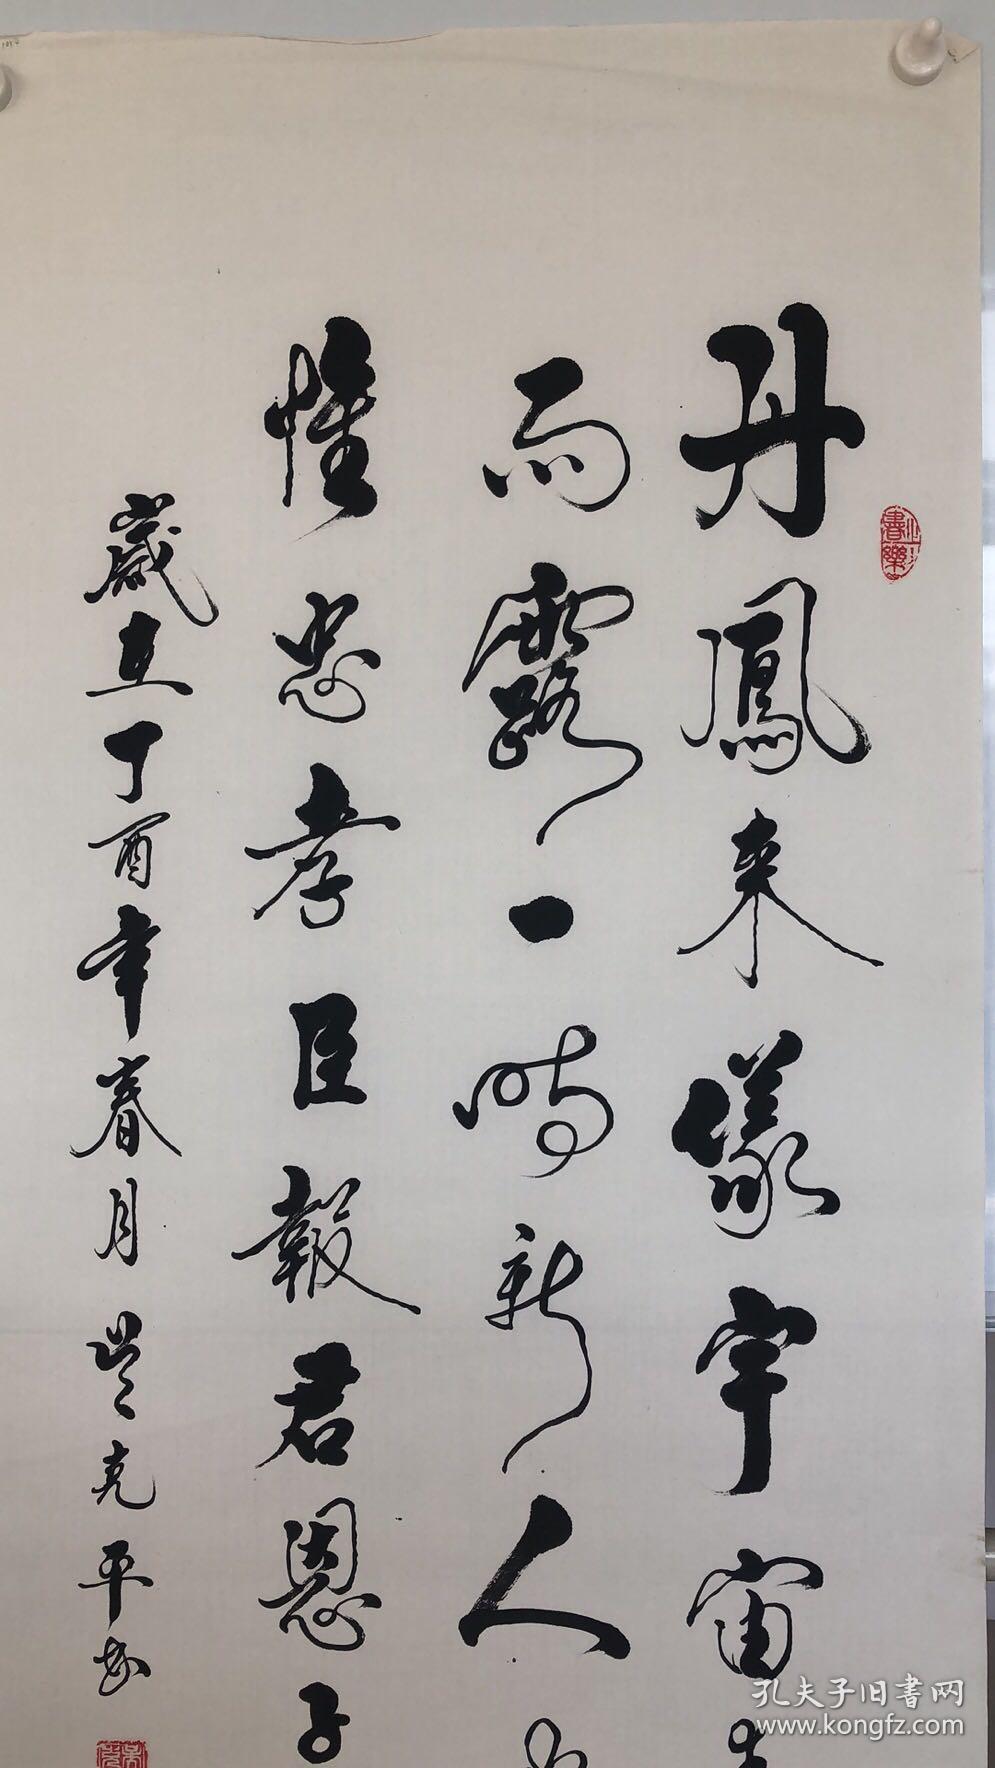 丹鳳來儀宇宙春
雨露一時新人
惟忠孝臣報君恩子
歲在丁酉年春月
克平书
孔夫子旧書网
www.kongfz.com